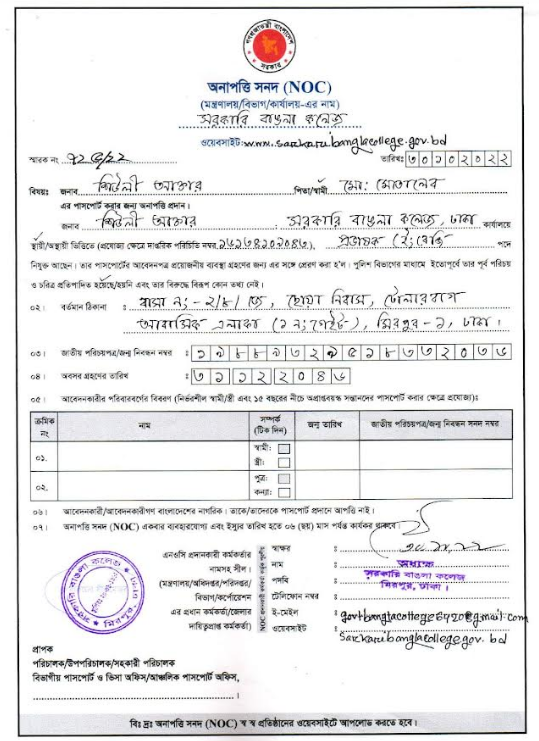 গণপ্রজাতন্ত্রী বাংলাদেশ
সরকার
অনাপত্তি সনদ (NOC)
(মন্ত্রণালয়/বিভাগ/কার্যালয়-এর নাম)
সরকারি বাঙলা কলেজ
ওয়েবসাইট: www.sarkaribanglacollege.gov.bd
স্মারক নং
তারিখ: ৩০১০২০২২
বিষয়: জনাব শিউলী আক্তার পিতা/স্বামী মো: মোতালেব
এর পাসপোর্ট করার জন্য অনাপত্তি প্রদান।
জনাব শিউলী আক্তার , সরকারি বাঙলা কলেজ, ঢাকা কার্যালয়ে
স্থায়ী/অস্থায়ী ভিত্তিতে (প্রযোজ্য ক্ষেত্রে দাপ্তরিক পরিচিতি নম্বর), প্রভাষক পদে
নিযুক্ত আছেন। তার পাসপোর্টের আবেদনপত্র প্রয়োজনীয় ব্যবস্থা গ্রহণের জন্য এর সঙ্গে প্রেরণ করা হ'ল। পুলিশ বিভাগের মাধ্যমে ইতোপূর্বে তার পূর্ব পরিচয়
ও চরিত্র প্রতিপাদিত হয়েছে/হয়নি এবং তার বিরুদ্ধে বিরূপ কোন তথ্য নেই।
০২। বর্তমান ঠিকানা : বাসা নং - ২/৪/ , ছোয়া নিবাস, টোলারবাগ
আবাসিক এলাকা (১ নং গেইট), মিরপুর - ১, ঢাকা।
০৩। জাতীয় পরিচয়পত্র/জন্ম নিবন্ধন নম্বর : ১৯৮৮৯৩২৯৫১৮৩৩২০৩৬
০৪। অবসর গ্রহণের তারিখ : ৩১১২২০৪৬
০৫। আবেদনকারীর পরিবারবর্গের বিবরণ (নির্ভরশীল স্বামী/স্ত্রী এবং ১৫ বছরের নীচে অপ্রাপ্তবয়স্ক সন্তানদের পাসপোর্ট করার ক্ষেত্রে প্রযোজ্য)ঃ
ক্রমিক নং নাম সম্পর্ক (টিক দিন) জন্ম তারিখ জাতীয় পরিচয়পত্র/জন্ম নিবন্ধন সনদ নম্বর
০১. স্বামী:
স্ত্রী:
০২. পুত্র:
কন্যা:
০৬। আবেদনকারী/আবেদনকারীগণ বাংলাদেশের নাগরিক। তাকে/তাদেরকে পাসপোর্ট প্রদানে আপত্তি নাই।
০৭। অনাপত্তি সনদ (NOC) একবার ব্যবহারযোগ্য এবং ইস্যুর তারিখ হতে ০৬ (ছয়) মাস পর্যন্ত কার্যকর থাকবে।
এনওসি প্রদানকারী কর্মকর্তার
নামসহ সীল।
(মন্ত্রণালয়/অধিদপ্তর/পরিদপ্তর/
বিভাগ/কর্পোরেশন
এর প্রধান কর্মকর্তা/জেলার
দায়িত্বপ্রাপ্ত কর্মকর্তা)
স্বাক্ষর :
নাম : অধ্যক্ষ
পদবি : সরকারি বাঙলা কলেজ
টেলিফোন নম্বর : মিরপুর, ঢাকা।
ই-মেইল : govtbanglacollege6420@gmail.com
ওয়েবসাইট : sarkaribanglacollege.gov.bd
সরকারি বাঙলা কলেজ
মিরপুর, ঢাকা
প্রাপক
পরিচালক/উপপরিচালক/সহকারী পরিচালক
বিভাগীয় পাসপোর্ট ও ভিসা অফিস/আঞ্চলিক পাসপোর্ট অফিস,
বিঃ দ্রঃ অনাপত্তি সনদ (NOC) স্ব স্ব প্রতিষ্ঠানের ওয়েবসাইটে আপলোড করতে হবে।